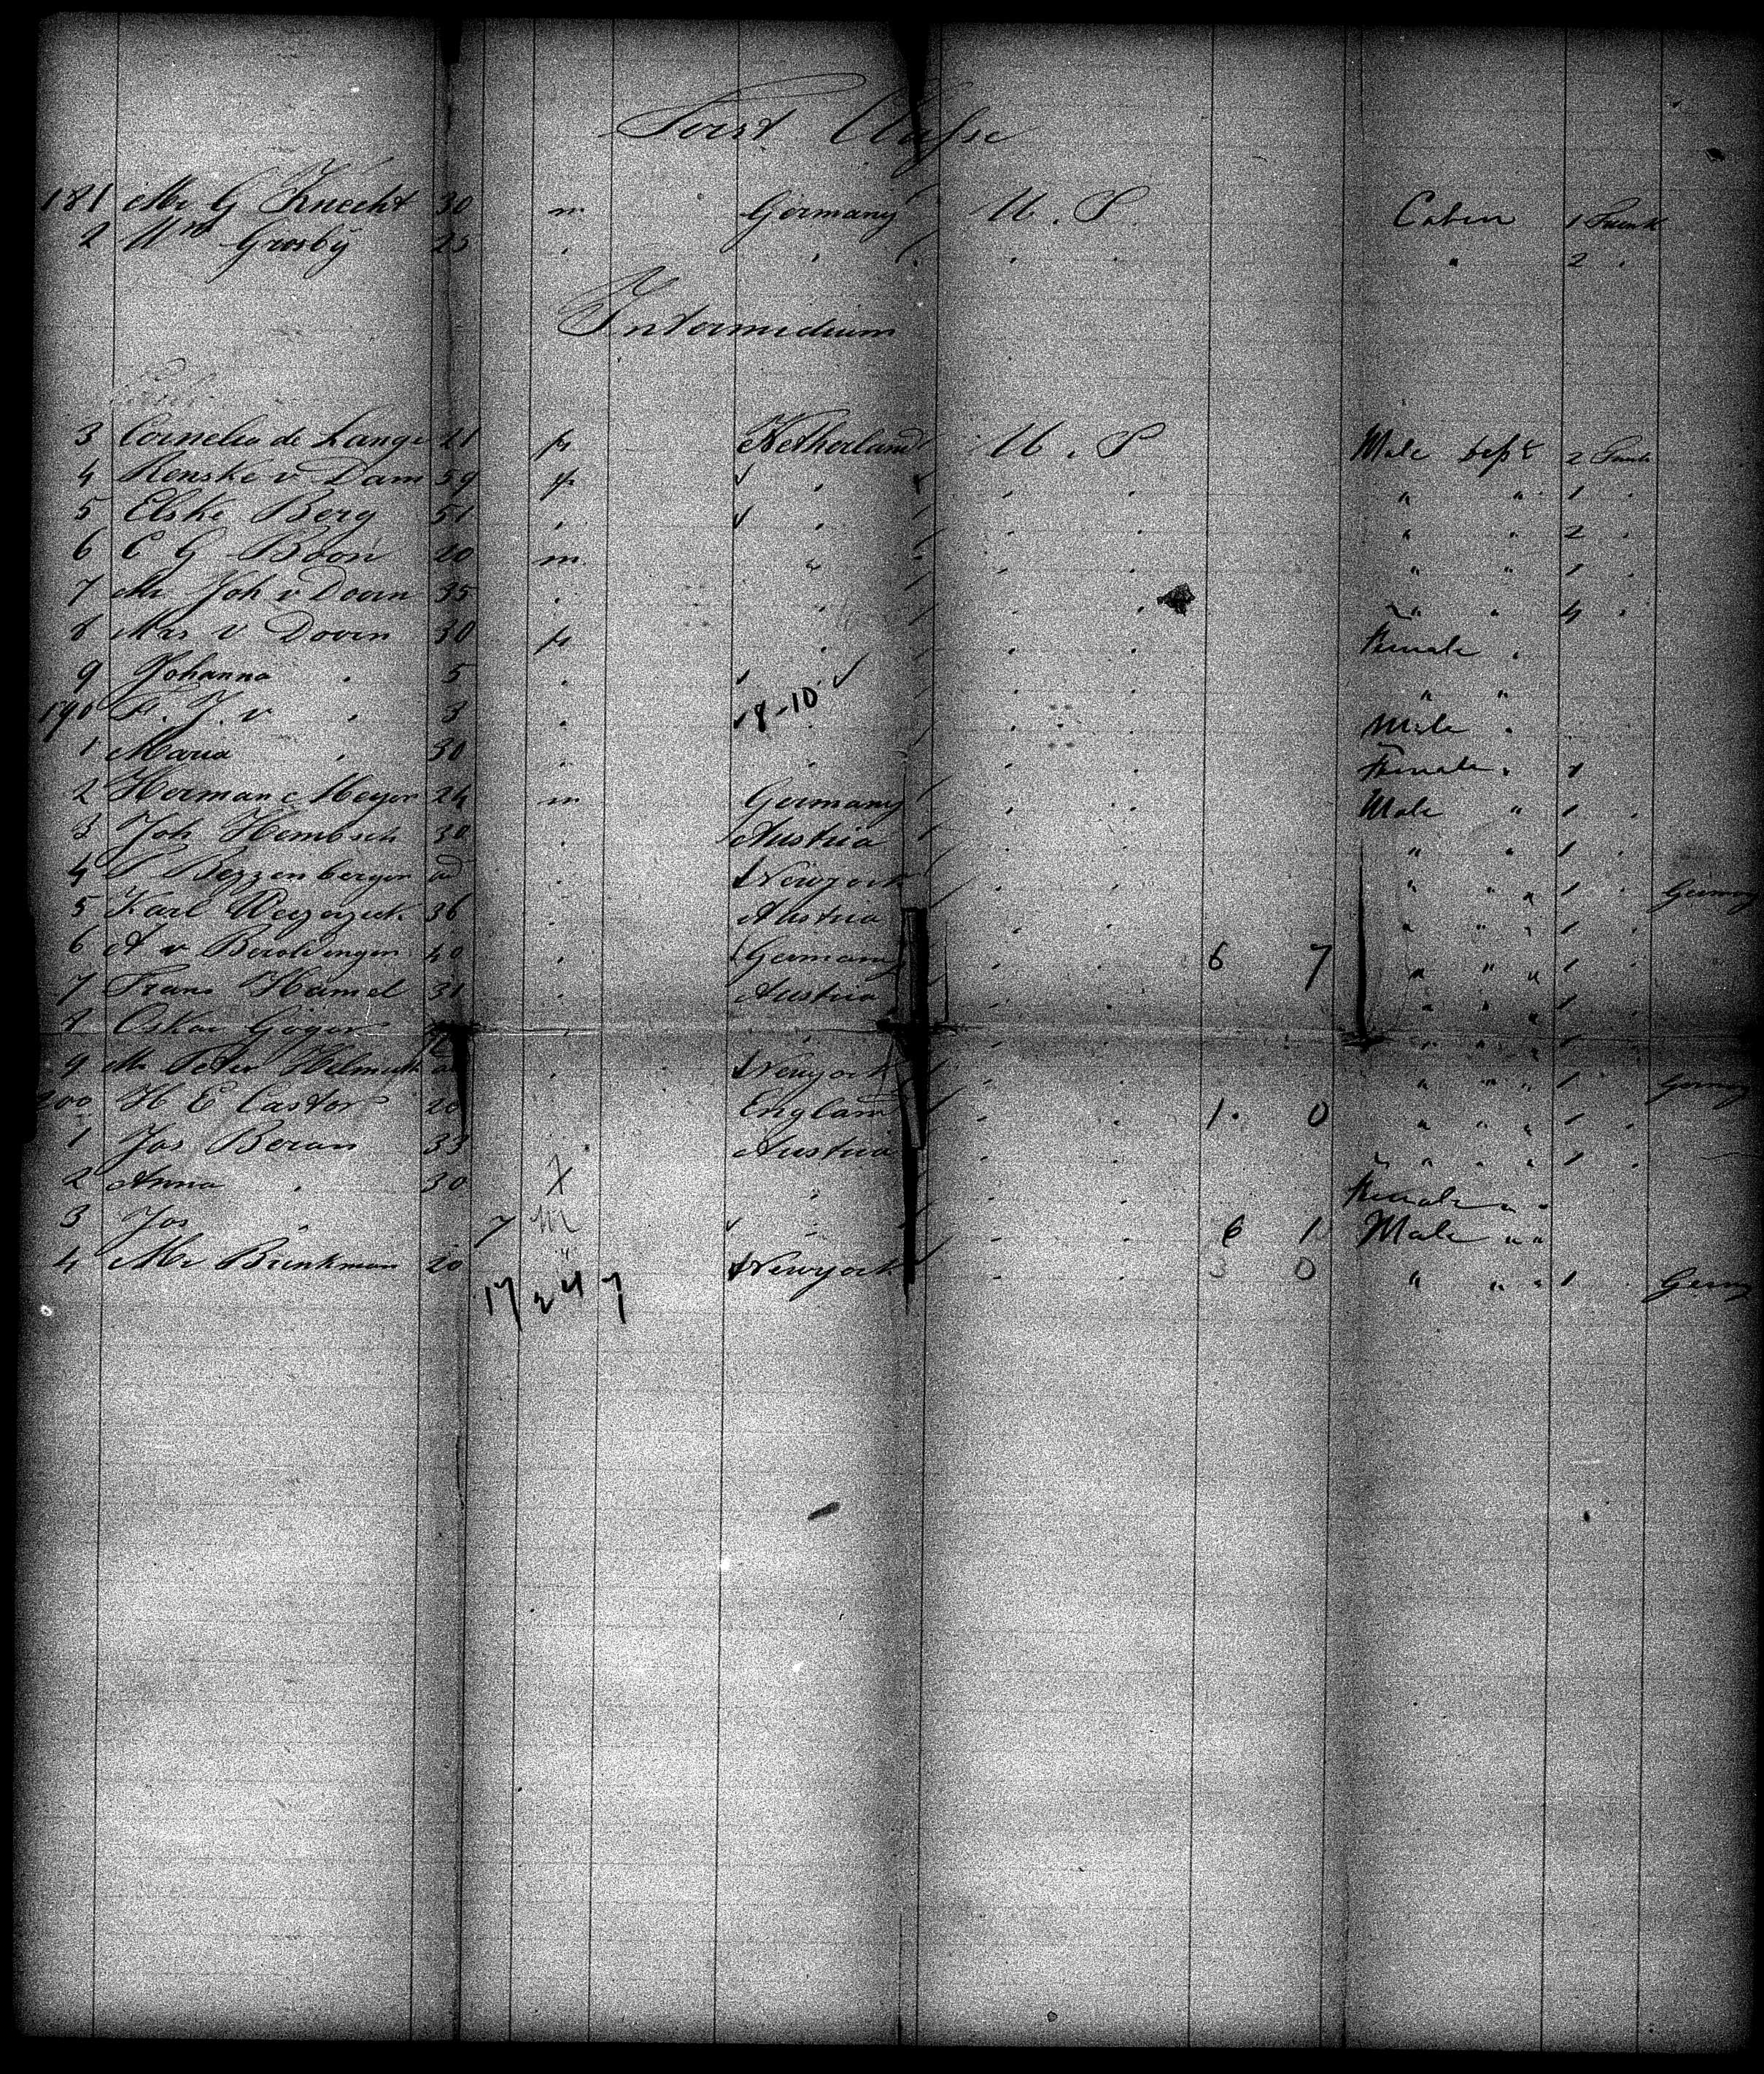 First Classe
181 Mr G Knecht 30 m Germany U.S. Cabin 1 Trunk
2 Mrs Grosby 25 " " " " " 2 "
Intermedium
3 Cornelia de Lange 21 f Netherland U.S Male dept 2 Trunk
4 Renske v Dam 59 f " " " " " 1 "
5 Elske Berg 51 " " " " " " 2 "
6 C G Boon 20 m " " " " " 1 "
7 Mr Joh v Doorn 35 " " " " " " 4 "
8 Mrs v Doorn 30 f " " " Female "
9 Johanna " 5 " " " " " "
190 F. J. v " 3 " 8-10 " " " Male "
1 Maria " 30 " " " " Female " 1
2 Herman c Meyer 24 m Germany " " Male " 1 "
3 Joh Hembsch 30 " Austria " " " " 1 "
4 Bezzenberger ad " Newyork " " " " 1 " Germany
5 Karl 36 " Austria " " " " " 1 "
6 A v Beroldingen 40 " Germany " " 6 7 " " " 1 "
7 Frans Hamel 31 " Austria " " " " " 1 "
Oskar Goger " " " " " " " 1 "
9 Mr Peter Helmuth ad " Newyork " " " " " 1 Germany
200 H E Castor 20 England " " 1. 0 " " " 1 "
1 Jos Beran 33 " Austria " " " " " 1 "
2 Anna " 30 f " " " Female " "
3 Jos " 7 m " " " 6 1 Male " "
4 Mr Brinkman 20 " Newyork " " 3 0 " " " 1 " Germ
17 24 7